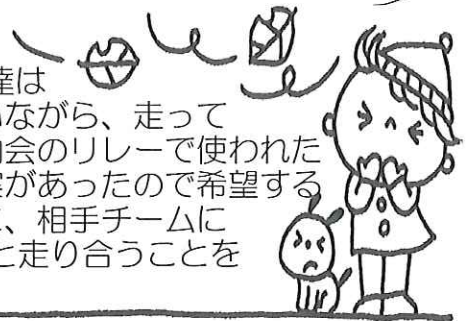 達は
いながら、走って
内会のリレーで使われた
案があったので希望する
に、相手チームに
と走り合うことを